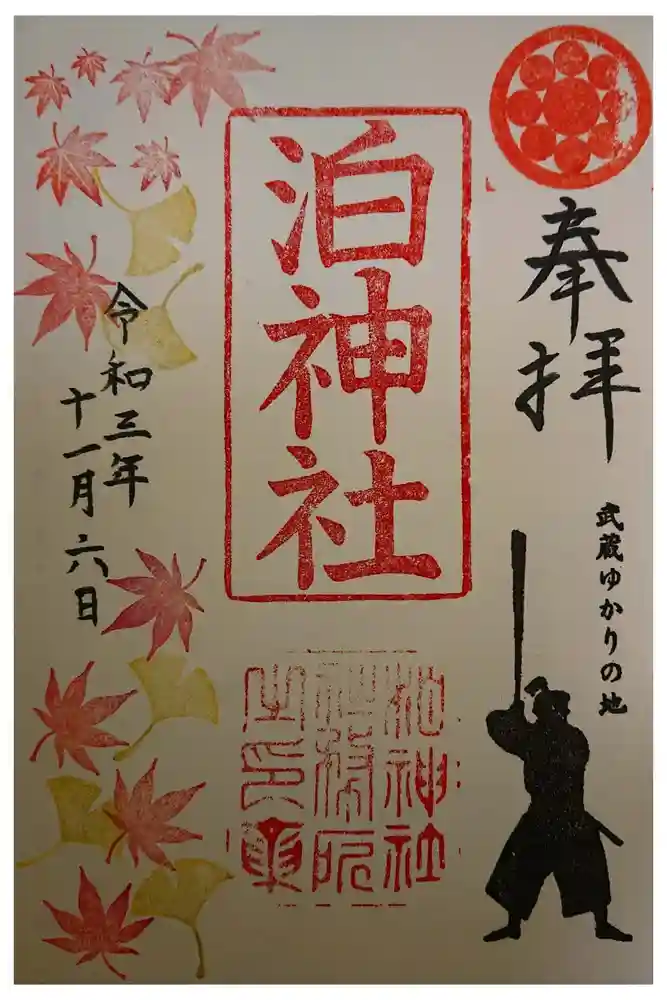 奉拝
武蔵ゆかりの地
泊神社
泊神社
令和三年
十一月六日